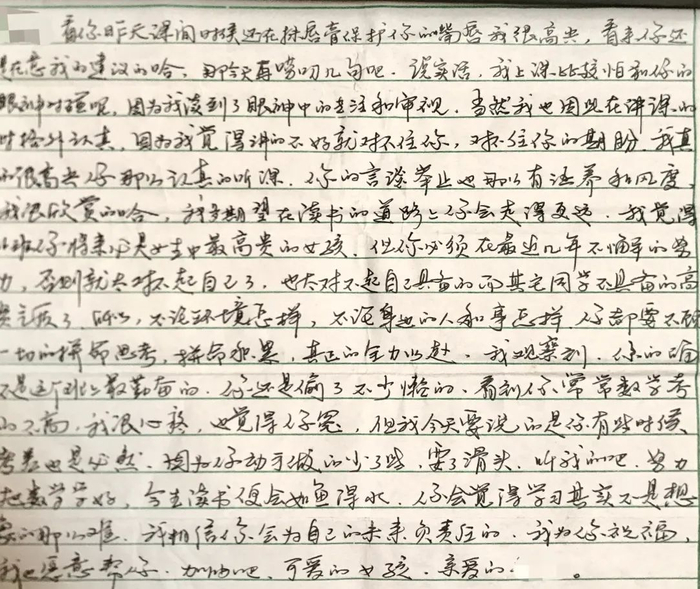 看你昨天课间时候还在抹唇膏保护你的嘴唇我很高兴，看来你还
是在意我的建议的哈，那今天再唠叨几句吧．说实话，我上课比较怕和你的
眼神对撞呢，因为我读到了眼神中的专注和审视．当然我也因此在讲课的
时格外认真，因为我觉得讲的不好就对不住你，对不住你的期盼．我真
的很高兴你那么认真的听课．你的言谈举止也那么有涵养和风度
我很欣赏的哈，我多期望在读书的道路上你会走得更远．我觉得
班你将来必是女生中最高贵的女孩．但你必须在最近几年不懈的努
力，否则就太对不起自己了．也太对不起自己具备的而其它同学不具备的高
贵气质了．所以，不论环境怎样，不论身边的人和事怎样 你都要不顾
一切的拼命思考，拼命积累，真正的全力以赴．我观察到．你的确
不是这个班上最勤奋的．你还是偷了不少懒的．看到你常常数学考
的不高，我很心疼，也觉得你冤，但我今天要说的是你有些时候
考差也是必然．因为你动手做的少了些，耍了滑头．听我的吧．努力
把数学学好，今生读书便会如鱼得水．你会觉得学习其实不是想
象的那么难．我相信你会为自己的未来负责任的．我为你祝福，
我也愿意帮你．加油吧、可爱的女孩．亲爱的．。